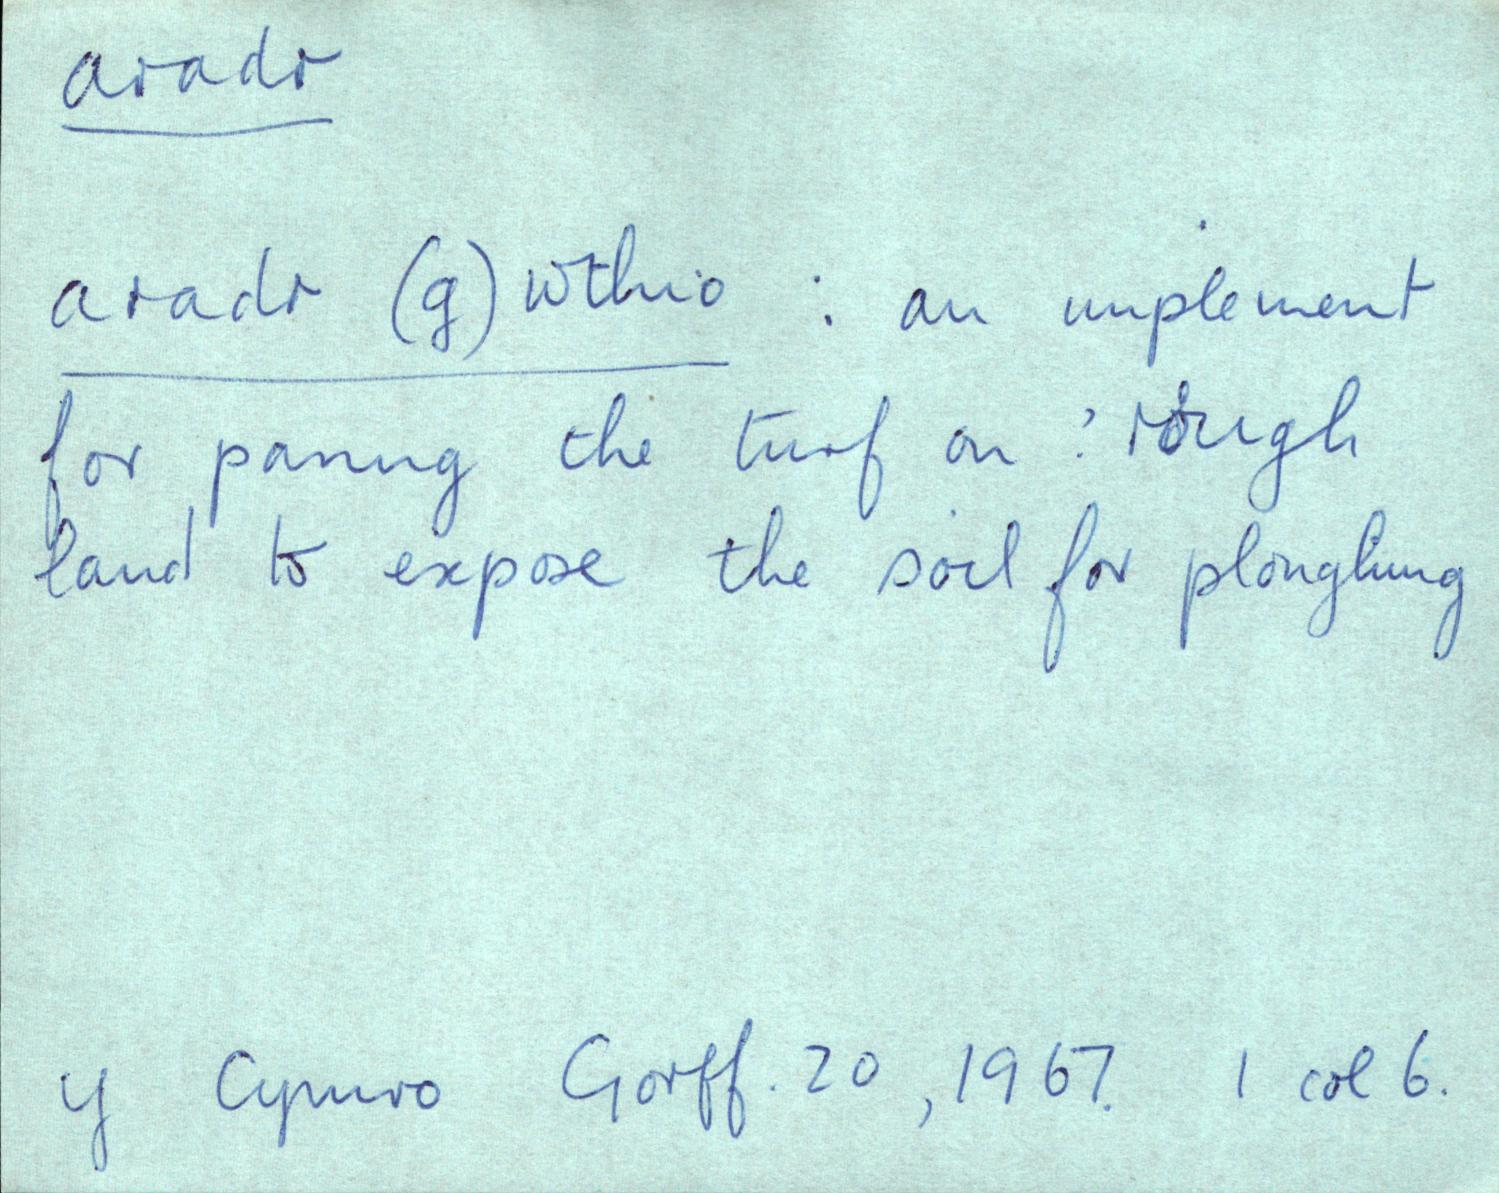 aradr
aradr (g)wthio : an implement
for paring the turf on ? rough
land to expose the soil for ploughing
Y Cymro Gorff. 20, 1967. 1 col 6.